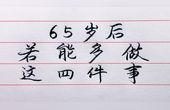 65岁后
若能多做
这四件事